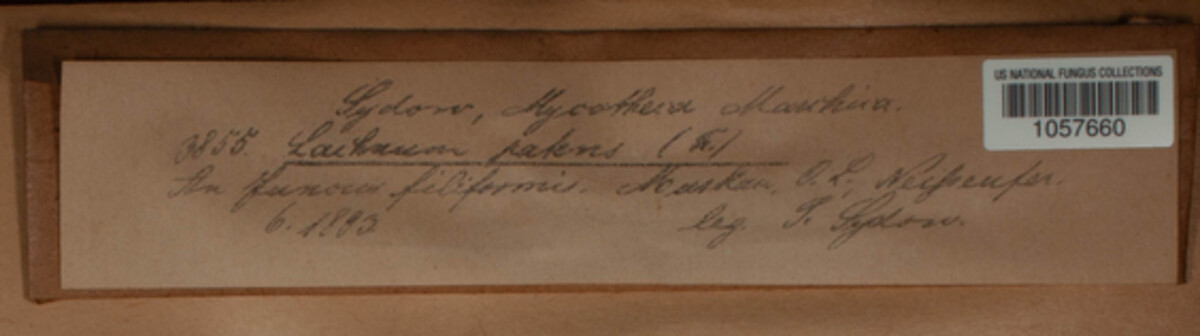 US NATIONAL FUNGUS COLLECTIONS
1057660
Sydow, Mycotheca Marchica.
3855. Lachnum patens (Fr.)
An Juncus filiformis. Muskau, O. L., Neißeufer.
6. 1893. leg. P. Sydow.